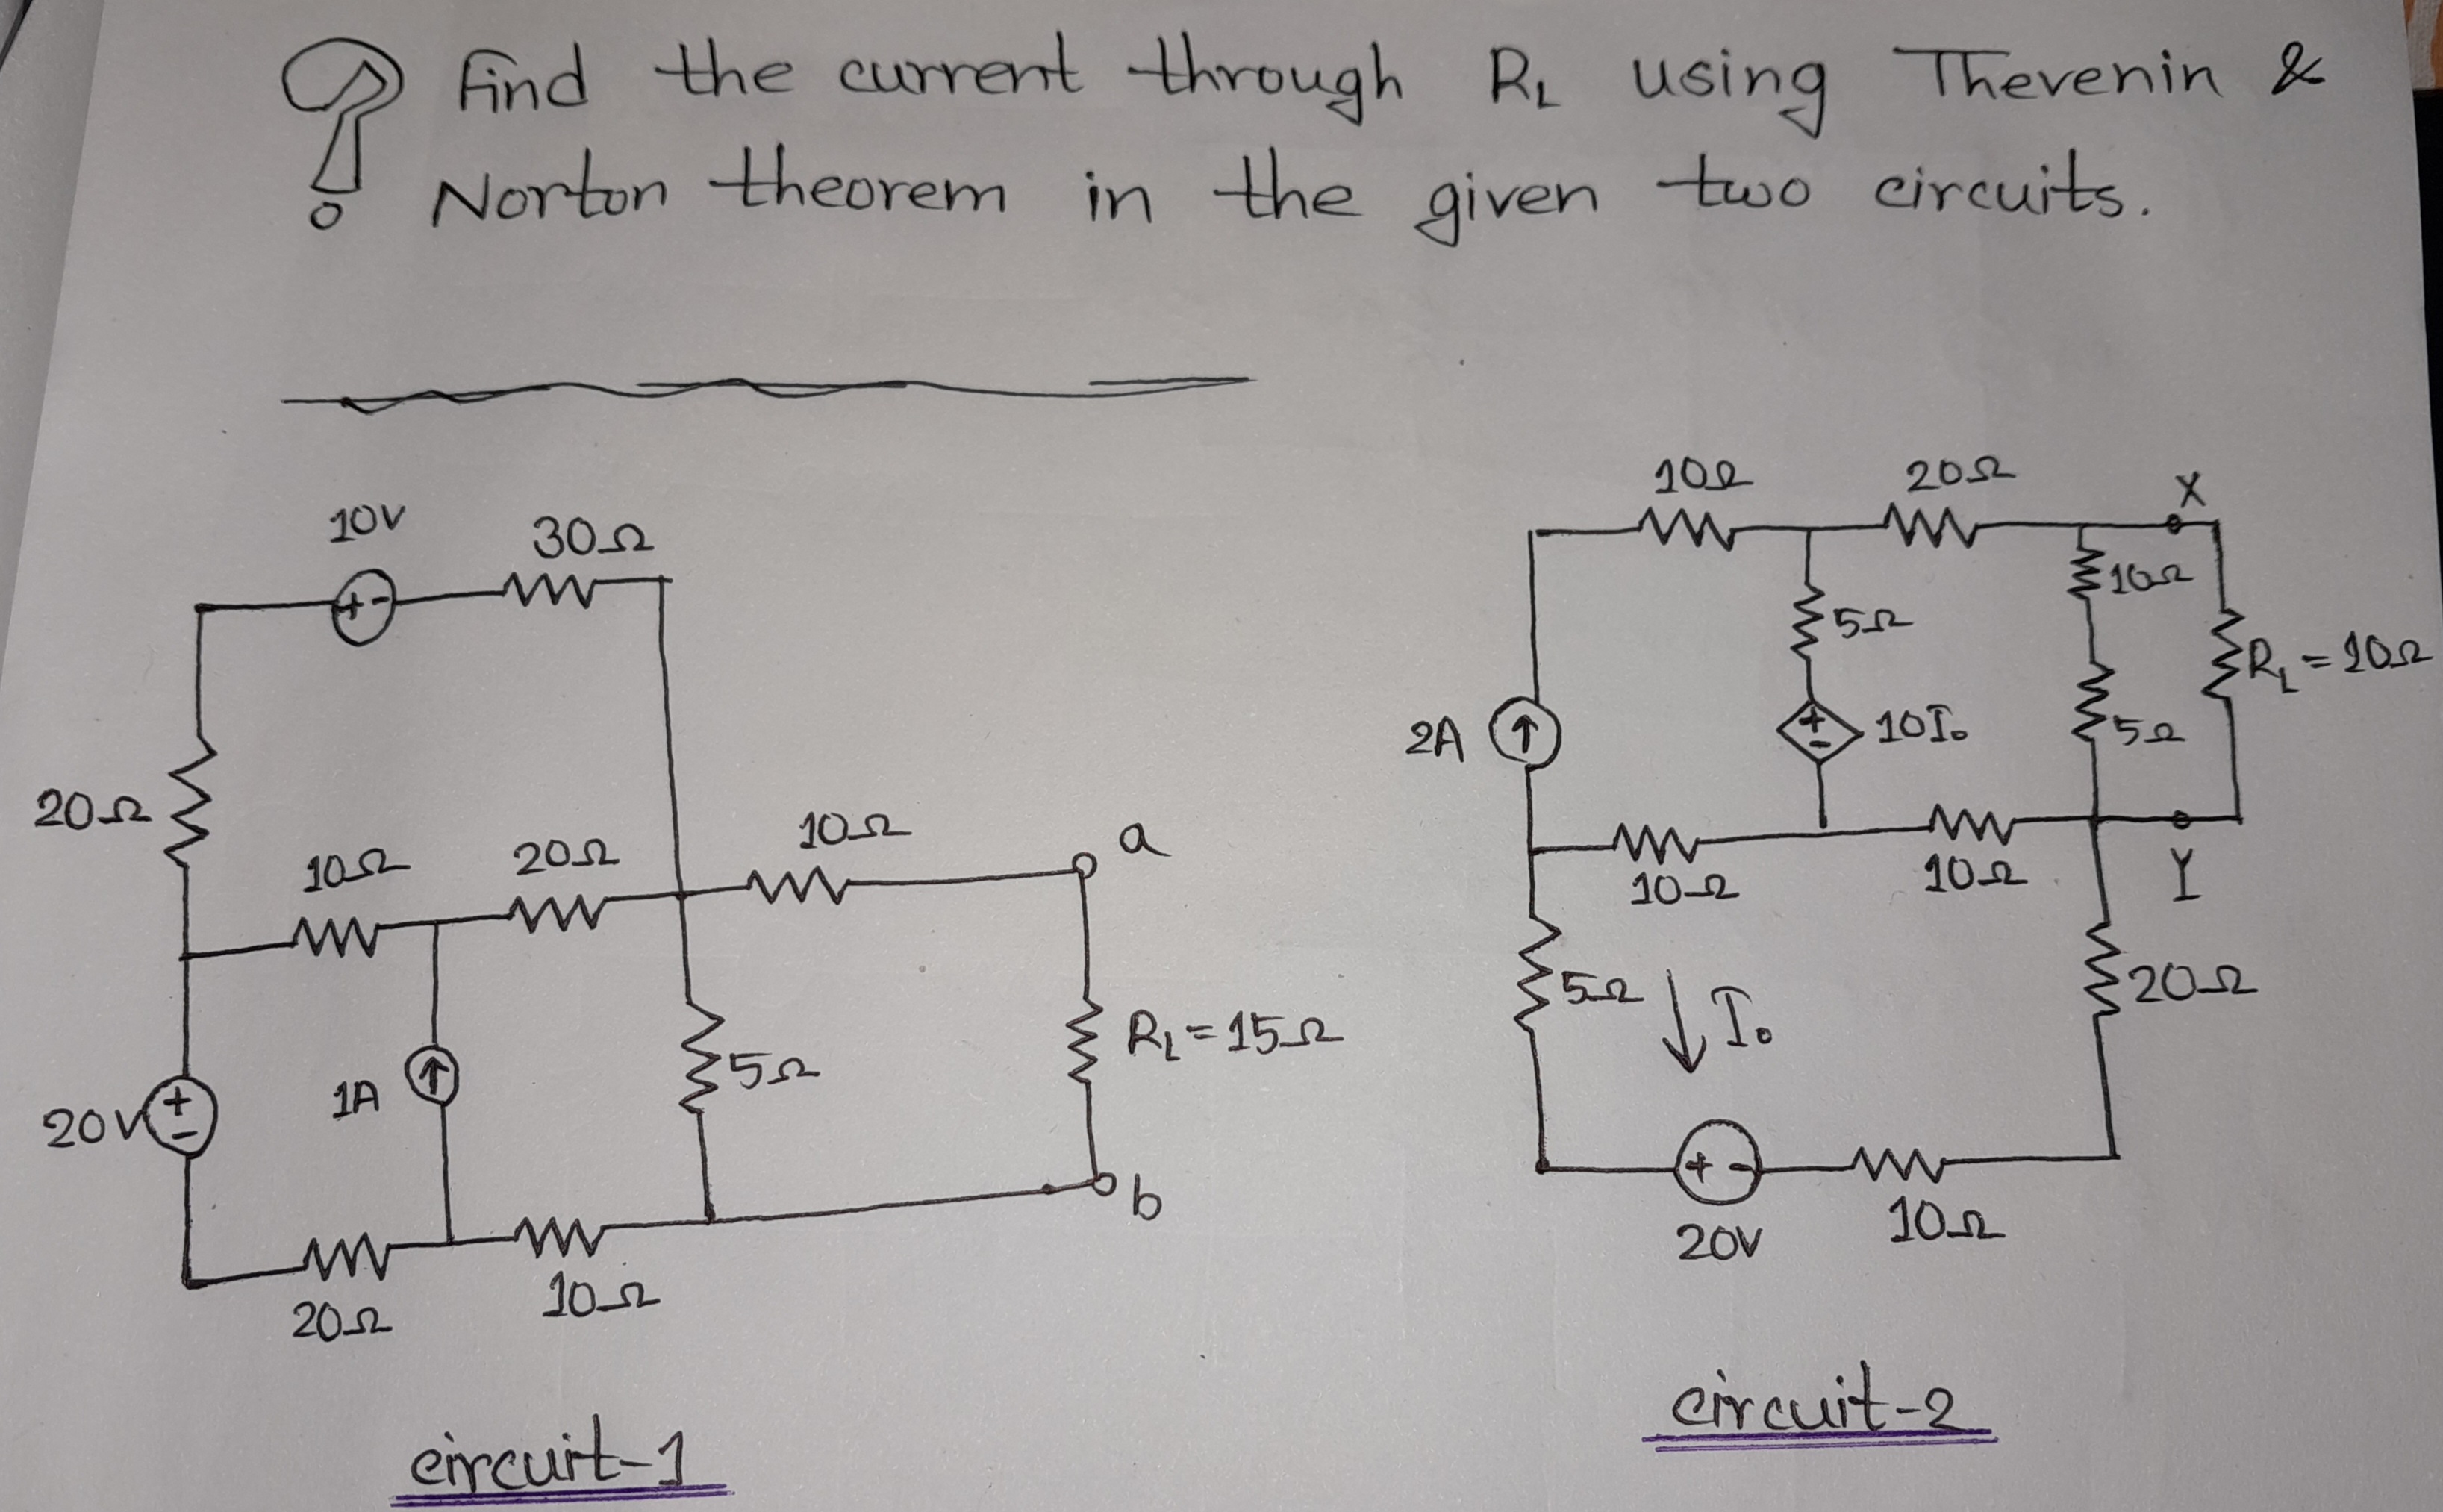 ? Find the current through R_L using Thevenin &
Norton theorem in the given two circuits.
10V
30Ω
20Ω
10Ω
20Ω
10Ω
a
20V
1A
5Ω
R_L=15Ω
b
20Ω
10Ω
circuit-1
10Ω
20Ω
X
5Ω
10Ω
R_L=10Ω
2A
10I₀
5Ω
10Ω
10Ω
Y
5Ω
I₀
20Ω
20V
10Ω
circuit-2